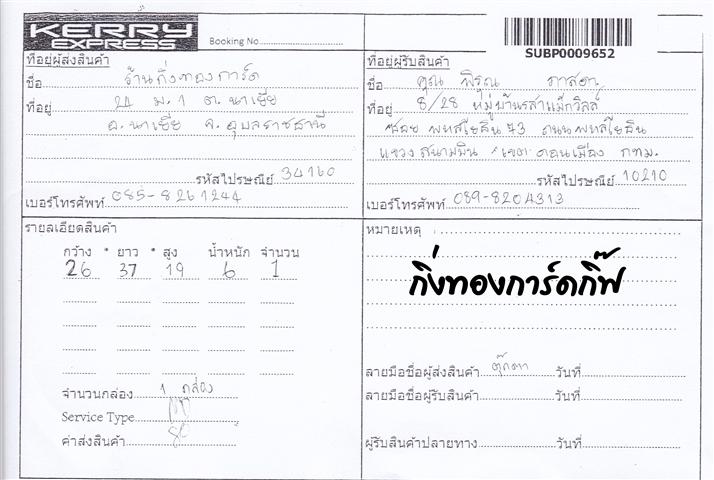 KERRY
EXPRESS
Booking No
SUBP0009652
ที่อยู่ผู้ส่งสินค้า
ชื่อ ร้านกิ่งทองการ์ด
ที่อยู่ 24 ม.1 ต.นาเยีย
อ.นาเยีย จ.อุบลราชธานี
รหัสไปรษณีย์ 34160
เบอร์โทรศัพท์ 085-8261244
ที่อยู่ผู้รับสินค้า
ชื่อ คุณ พิรุณ
ที่อยู่ 8/28 หมู่บ้าน
ซอย พหลโยธิน 73 ถนน พหลโยธิน
แขวง สนามบิน เขต ดอนเมือง กทม.
รหัสไปรษณีย์ 10210
เบอร์โทรศัพท์ 089-8204313
รายละเอียดสินค้า
กว้าง * ยาว * สูง น้ำหนัก จำนวน
26 37 19 6 1
จำนวนกล่อง 1 กล่อง
Service Type
ค่าส่งสินค้า 80
หมายเหตุ :
กิ่งทองการ์ดกิ๊ฟ
ลายมือชื่อผู้ส่งสินค้า ตุ๊กตา วันที่
ลายมือชื่อผู้รับสินค้า วันที่
ผู้รับสินค้าปลายทาง วันที่